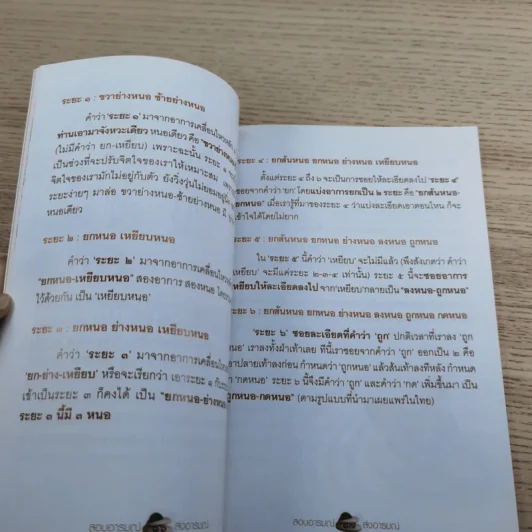 ระยะ ๑ : ขวาย่างหนอ ซ้ายย่างหนอ
คำว่า 'ระยะ ๑' มาจากอาการเคลื่อนไหว
ท่านเอามาจังหวะเดียว หนอเดียว คือ 'ขวาย่างหนอ
(ไม่มีคำว่า ยก-เหยียบ) เพราะฉะนั้น ระยะ ๑
เป็นช่วงที่จะปรับจิตใจของเราให้เหมาะสม เพราะ
จิตใจของเรามักไม่อยู่กับตัว ยังวิ่งวุ่นไม่ยอมอยู่
ระยะง่ายๆ มาล่อ ขวาย่างหนอ-ซ้ายย่างหนอ มี
หนอเดียว
ระยะ ๒ : ยกหนอ เหยียบหนอ
คำว่า 'ระยะ ๒' มาจากอาการเคลื่อนไหว
"ยกหนอ-เหยียบหนอ" สองอาการ สองหนอ
ไว้ด้วยกัน เป็น 'เหยียบหนอ'
ระยะ ๓ : ยกหนอ ย่างหนอ เหยียบหนอ
คำว่า 'ระยะ ๓' มาจากอาการเคลื่อนไหว
'ยก-ย่าง-เหยียบ' หรือจะเรียกว่า เอาระยะ ๑
เข้าเป็นระยะ ๓ ก็คงได้ เป็น "ยกหนอ-ย่างหนอ
ระยะ ๓ นี้มี ๓ หนอ
สอบอารมณ์ ส่งอารมณ์
ระยะ ๔ : ยกส้นหนอ ยกหนอ ย่างหนอ เหยียบหนอ
ตั้งแต่ระยะ ๔ ถึง ๖ จะเป็นการซอยให้ละเอียดลงไป 'ระยะ ๔'
ซอยจากคำว่า 'ยก' โดยแบ่งอาการยกเป็น ๒ ระยะ คือ "ยกส้นหนอ-
ยกหนอ" เมื่อเรารู้ที่มาของระยะ ๔ ว่าแบ่งละเอียดเอาตอนไหน ก็จะ
เข้าใจได้โดยไม่ยาก
ระยะ ๕ : ยกส้นหนอ ยกหนอ ย่างหนอ ลงหนอ ถูกหนอ
ใน 'ระยะ ๕' นี้คำว่า 'เหยียบ' จะไม่มีแล้ว (พึงสังเกตว่า คำว่า
'เหยียบ' จะมีแค่ระยะ ๒-๓-๔ เท่านั้น) ระยะ ๕ นี้จะซอยอาการ
เหยียบให้ละเอียดลงไป จาก'เหยียบ'กลายเป็น "ลงหนอ-ถูกหนอ"
ระยะ ๖ : ยกส้นหนอ ยกหนอ ย่างหนอ ลงหนอ ถูกหนอ กดหนอ
'ระยะ ๖' ซอยละเอียดที่คำว่า 'ถูก' ปกติเวลาที่เราลง 'ถูก
หนอ' เราลงทั้งฝ่าเท้าเลย ทีนี้เราซอยจากคำว่า 'ถูก' ออกเป็น ๒ คือ
เอาปลายเท้าลงก่อน กำหนดว่า 'ถูกหนอ' แล้วส้นเท้าลงทีหลัง กำหนด
ว่า 'กดหนอ' ระยะ ๖ นี้จึงมีคำว่า 'ถูก' และคำว่า 'กด' เพิ่มขึ้นมา เป็น
"ถูกหนอ-กดหนอ" (ตามรูปแบบที่นำมาเผยแพร่ในไทย)
สอบอารมณ์ ส่งอารมณ์